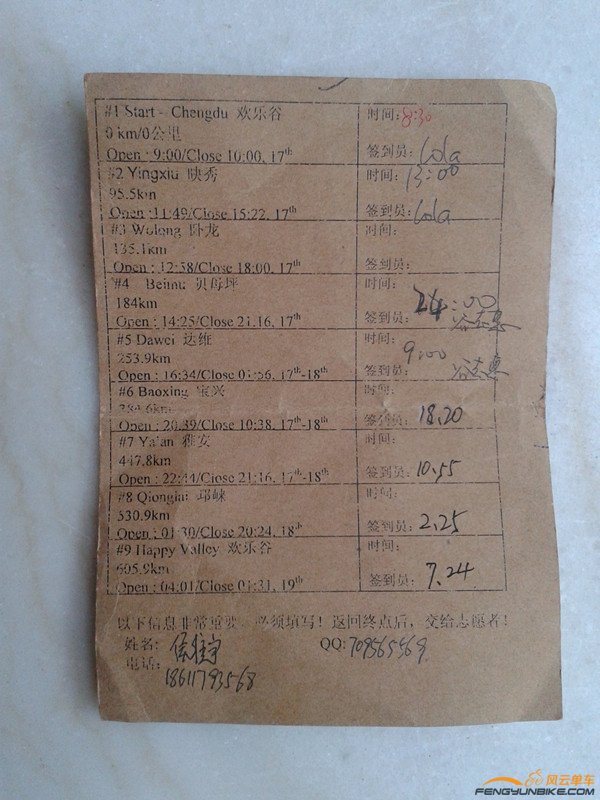 #1 Start - Chengdu 欢乐谷 时间: 8:30
0 km/0公里
Open : 9:00/Close 10:00, 17th 签到员: Cola
#2 Yingxiu 映秀 时间: 13:00
95.5km
Open :11:49/Close 15:22, 17th 签到员: Cola
#3 Wolong 卧龙 时间:
135.1km
Open : 12:58/Close 18:00, 17th 签到员:
#4 Beimu 贝母坪 时间: 24:00
184km
Open : 14:25/Close 21.16, 17th 签到员:
#5 Dawei 达维 时间: 9:00
253.9km
Open : 16:34/Close 01:56, 17th-18th 签到员:
#6 Baoxing 宝兴 时间:
384.6km
Open : 20:39/Close 10:38, 17th-18th 签到员: 18.20
#7 Ya'an 雅安 时间:
447.8km
Open : 22:44/Close 21:16, 17th-18th 签到员: 10.55
#8 Qionglai 邛崃 时间:
530.9km
Open : 01:30/Close 20:24, 18th 签到员: 2.25
#9 Happy Valley 欢乐谷 时间:
605.9km
Open : 04:01/Close 01:31, 19th 签到员: 7.24
以下信息非常重要，必须填写！返回终点后，交给志愿者！
姓名: QQ: 709565569
电话: 18611793568
风云单车
FENGYUNBIKE.COM